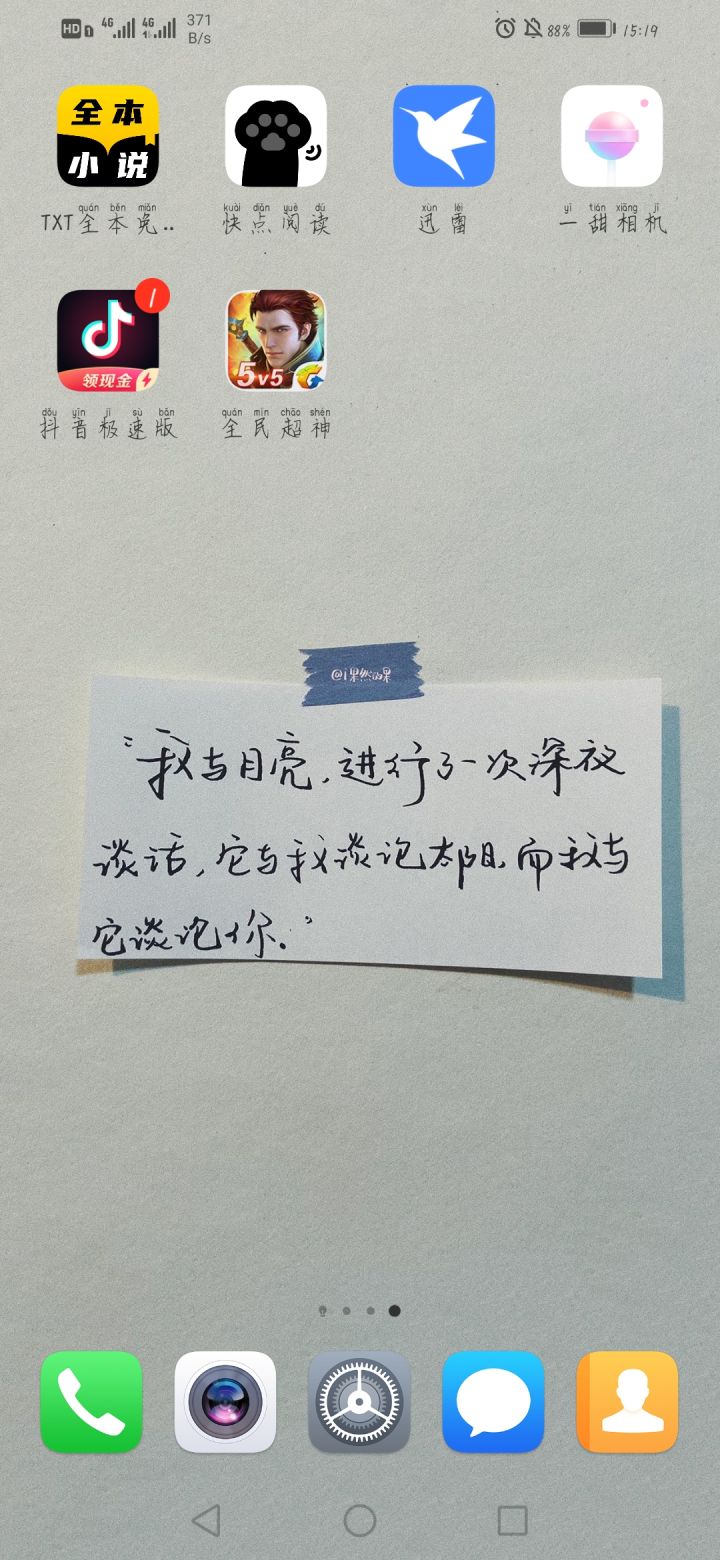 HD 1 4G 4G 371 B/s 88% 15:19
全本
小说
quán běn miǎn
TXT全本免..
kuài diǎn yuè dú
快点阅读
xùn léi
迅雷
yī tián xiāng jī
一甜相机
1
领现金
dǒu yīn jí sù bǎn
抖音极速版
5v5
quán mín chāo shén
全民超神
@i果然的果
“我与月亮,进行了一次深夜
谈话,它与我谈论太阳,而我与
它谈论你.”